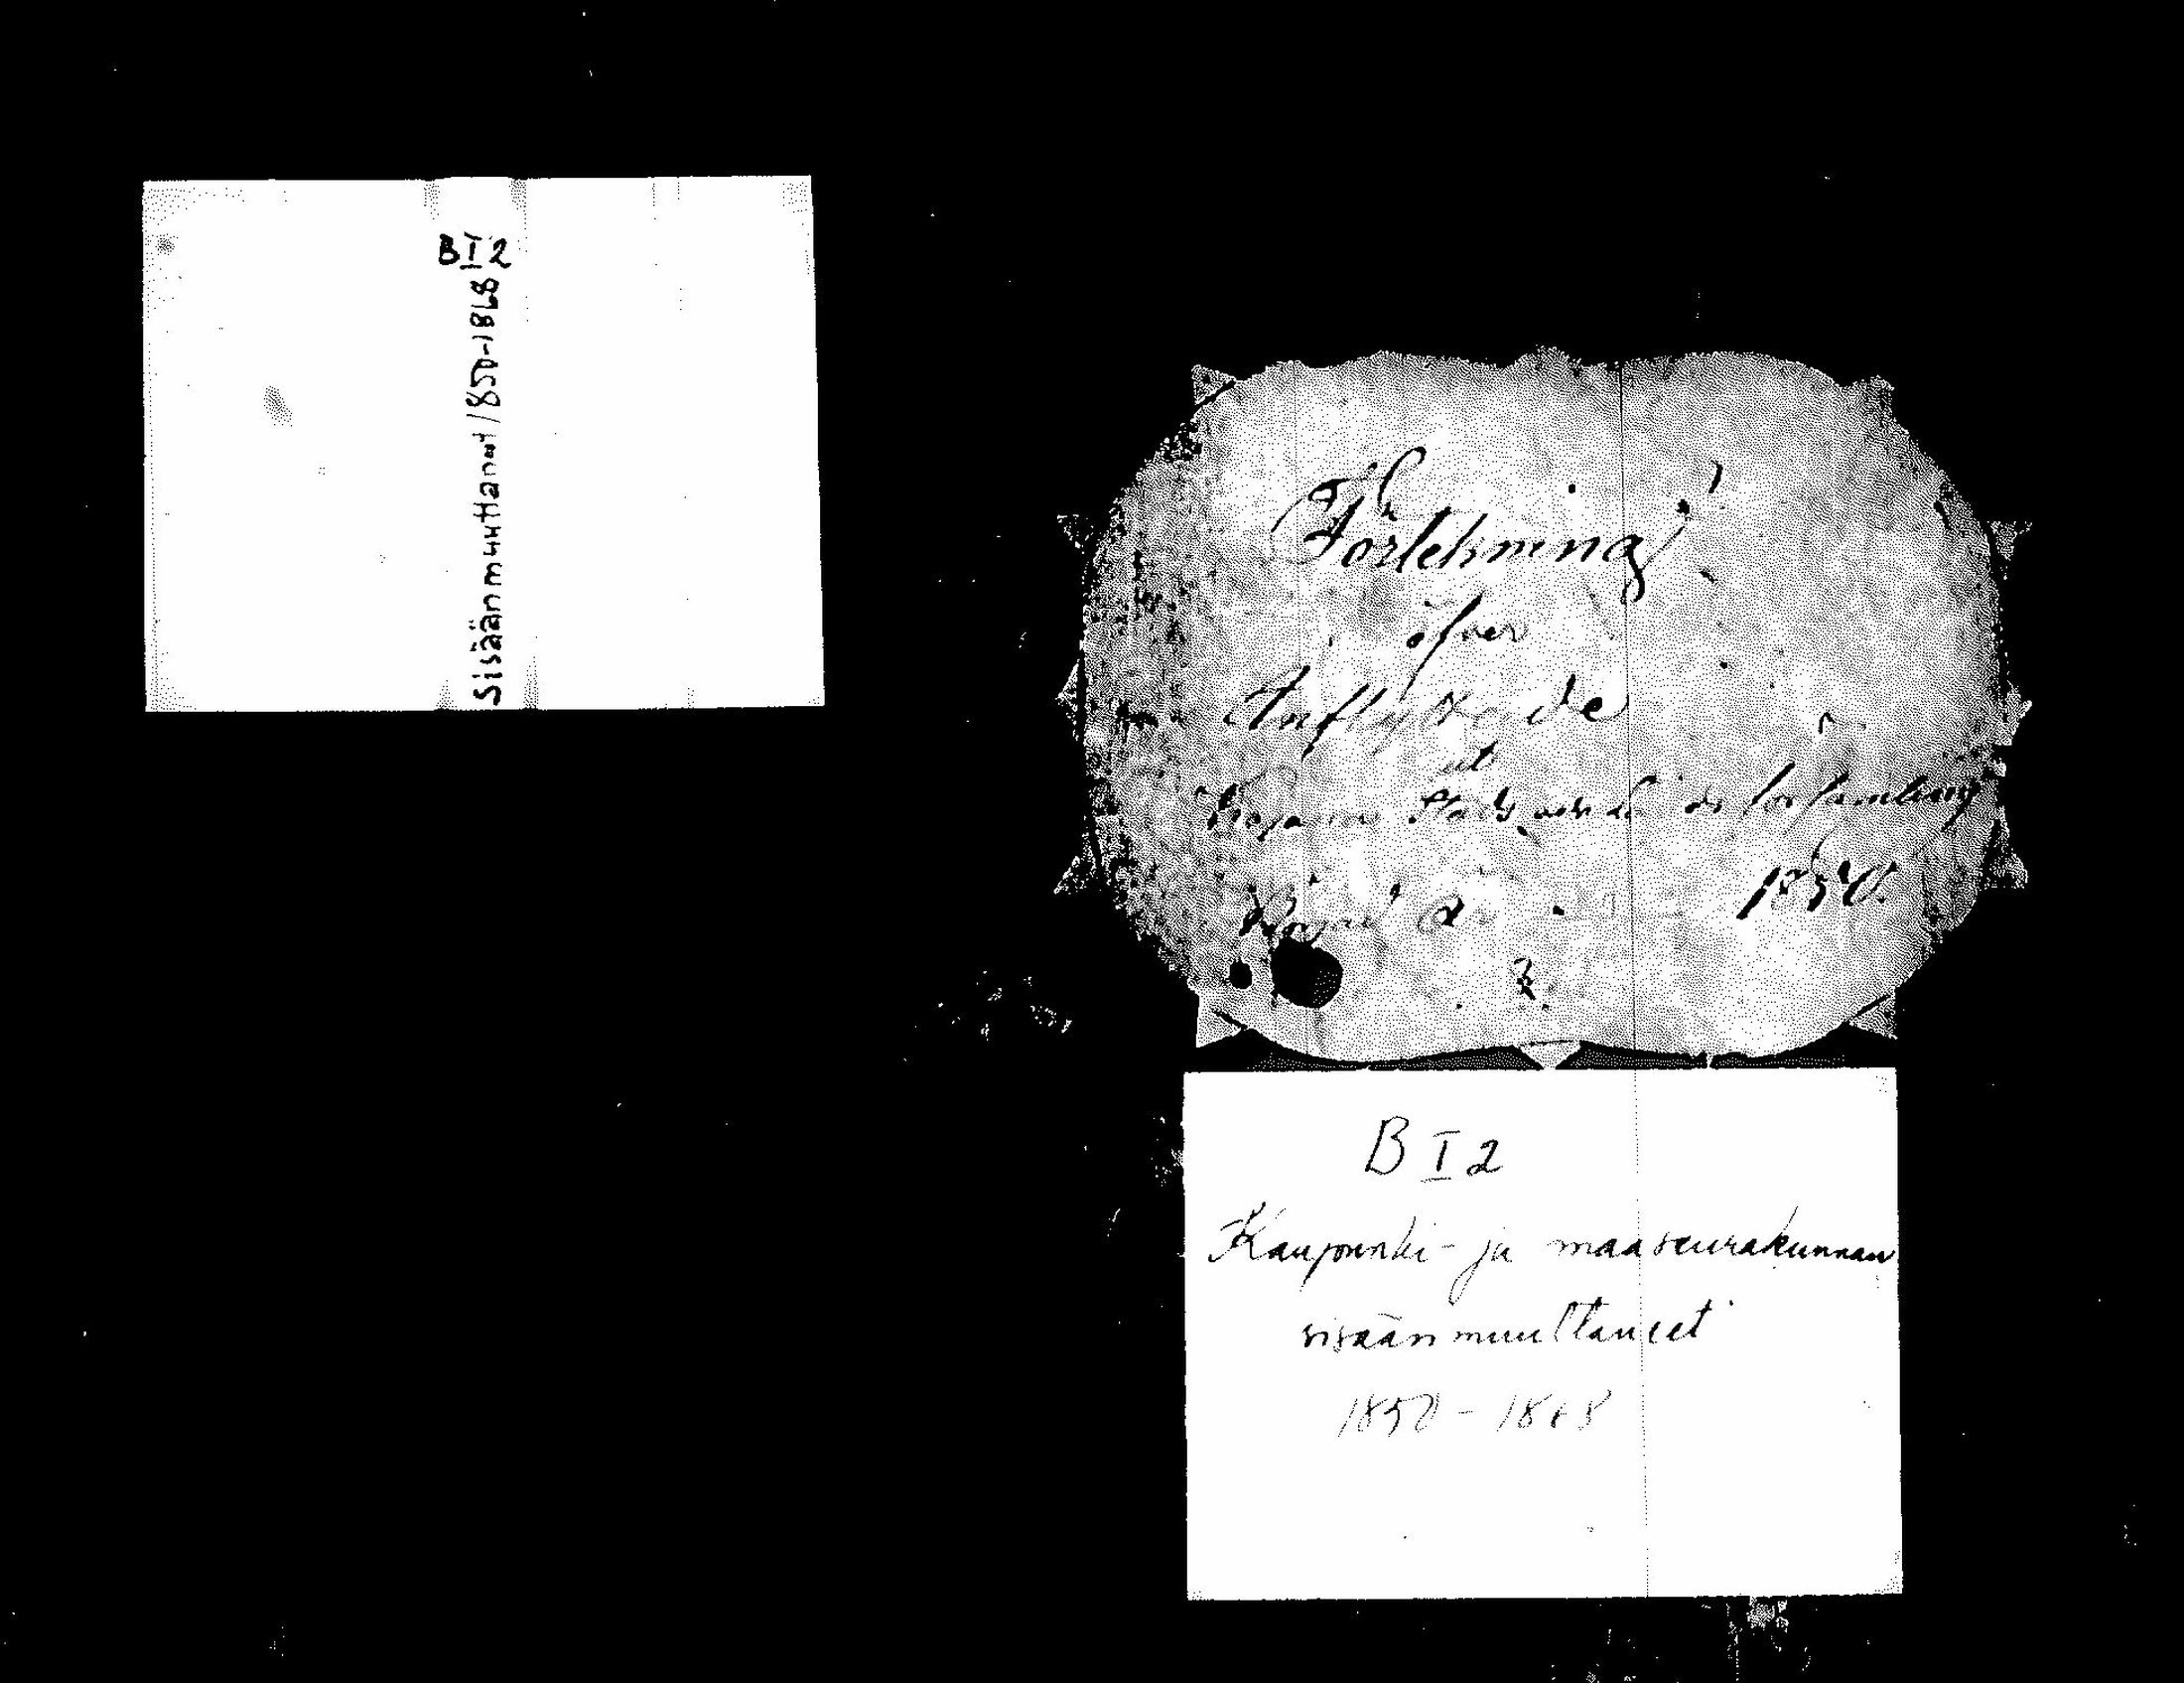 B I 2
Sisäänmuuttanut 1850-1868
Förtekning
öfver
Inflyttade
Stads och församling
1850.
Börjad
B I 2
Kaupunki- ja maaseurakunnan
sisäänmuuttaneet
1850 - 1868